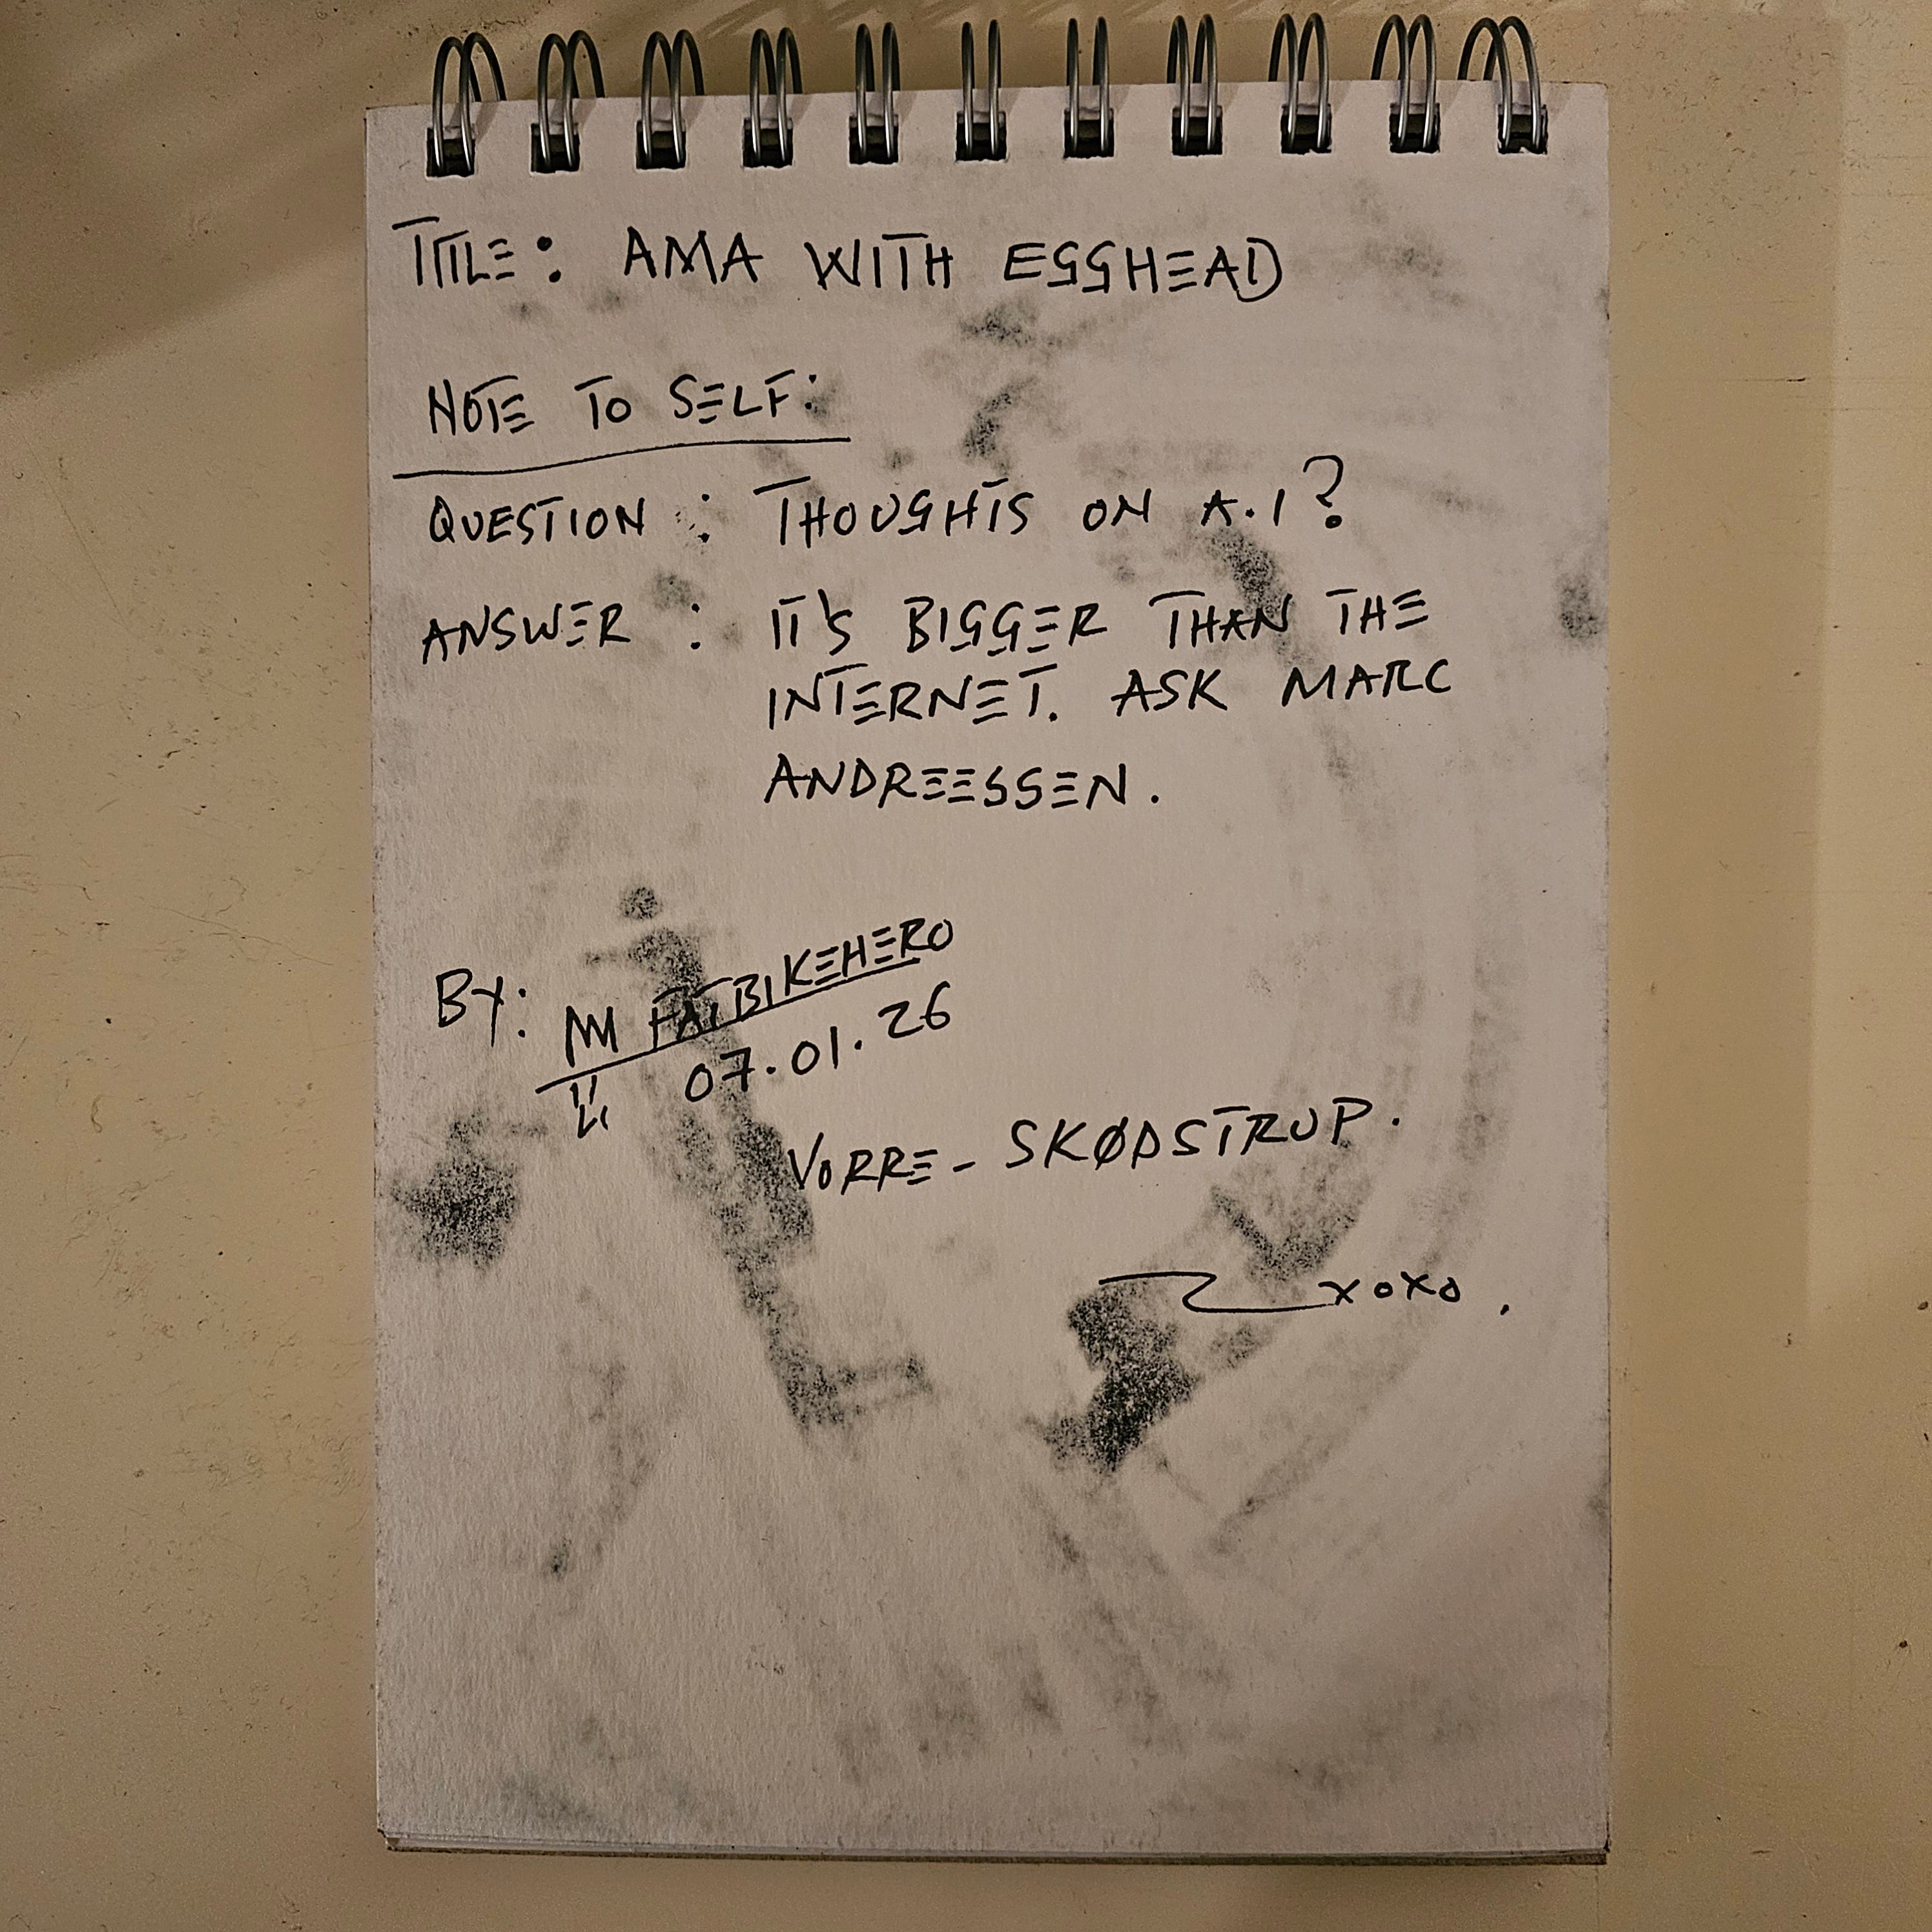 TITLE: AMA WITH EGGHEAD
NOTE TO SELF:
QUESTION : THOUGHTS ON A.I?
ANSWER : IT'S BIGGER THAN THE
INTERNET. ASK MARC
ANDREESSEN.
BY: FATBIKEHERO
07.01.26
VORRE - SKØDSTRUP.
xoxo.